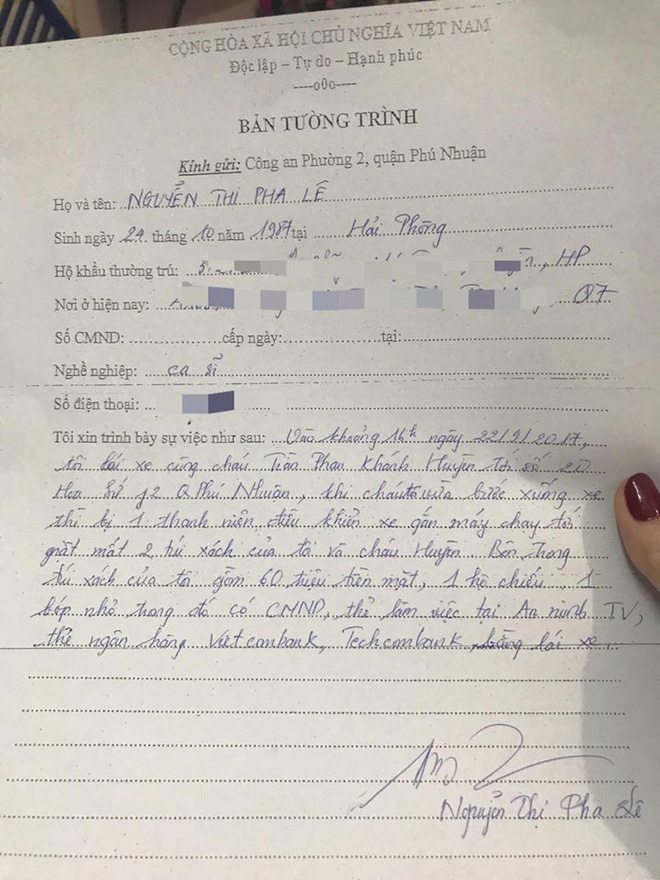 CỘNG HÒA XÃ HỘI CHỦ NGHĨA VIỆT NAM
Độc lập – Tự do – Hạnh phúc
----o0o----
BẢN TƯỜNG TRÌNH
Kính gửi: Công an Phường 2, quận Phú Nhuận
Họ và tên: NGUYỄN THỊ PHA LÊ
Sinh ngày 24 tháng 10 năm 1987 tại Hải Phòng
Hộ khẩu thường trú: , HP
Nơi ở hiện nay: Q7
Số CMND: cấp ngày: tại:
Nghề nghiệp: ca sĩ
Số điện thoại:
Tôi xin trình bày sự việc như sau: Vào khoảng 16h ngày 22/9/2017,
tôi lái xe cùng cháu Trần Phan Khánh Huyền tới số 20
Hoa Sứ f2 Q Phú Nhuận, khi cháu vừa bước xuống xe
thì bị 1 thanh niên điều khiển xe gắn máy chạy tới
giật mất 2 túi xách của tôi và cháu Huyền. Bên trong
túi xách của tôi gồm 60 triệu tiền mặt, 1 hộ chiếu 1
bóp nhỏ trong đó có CMND, thẻ làm việc tại An ninh TV,
thẻ ngân hàng Vietcombank, Techcombank, bằng lái xe.
Nguyễn Thị Pha Lê